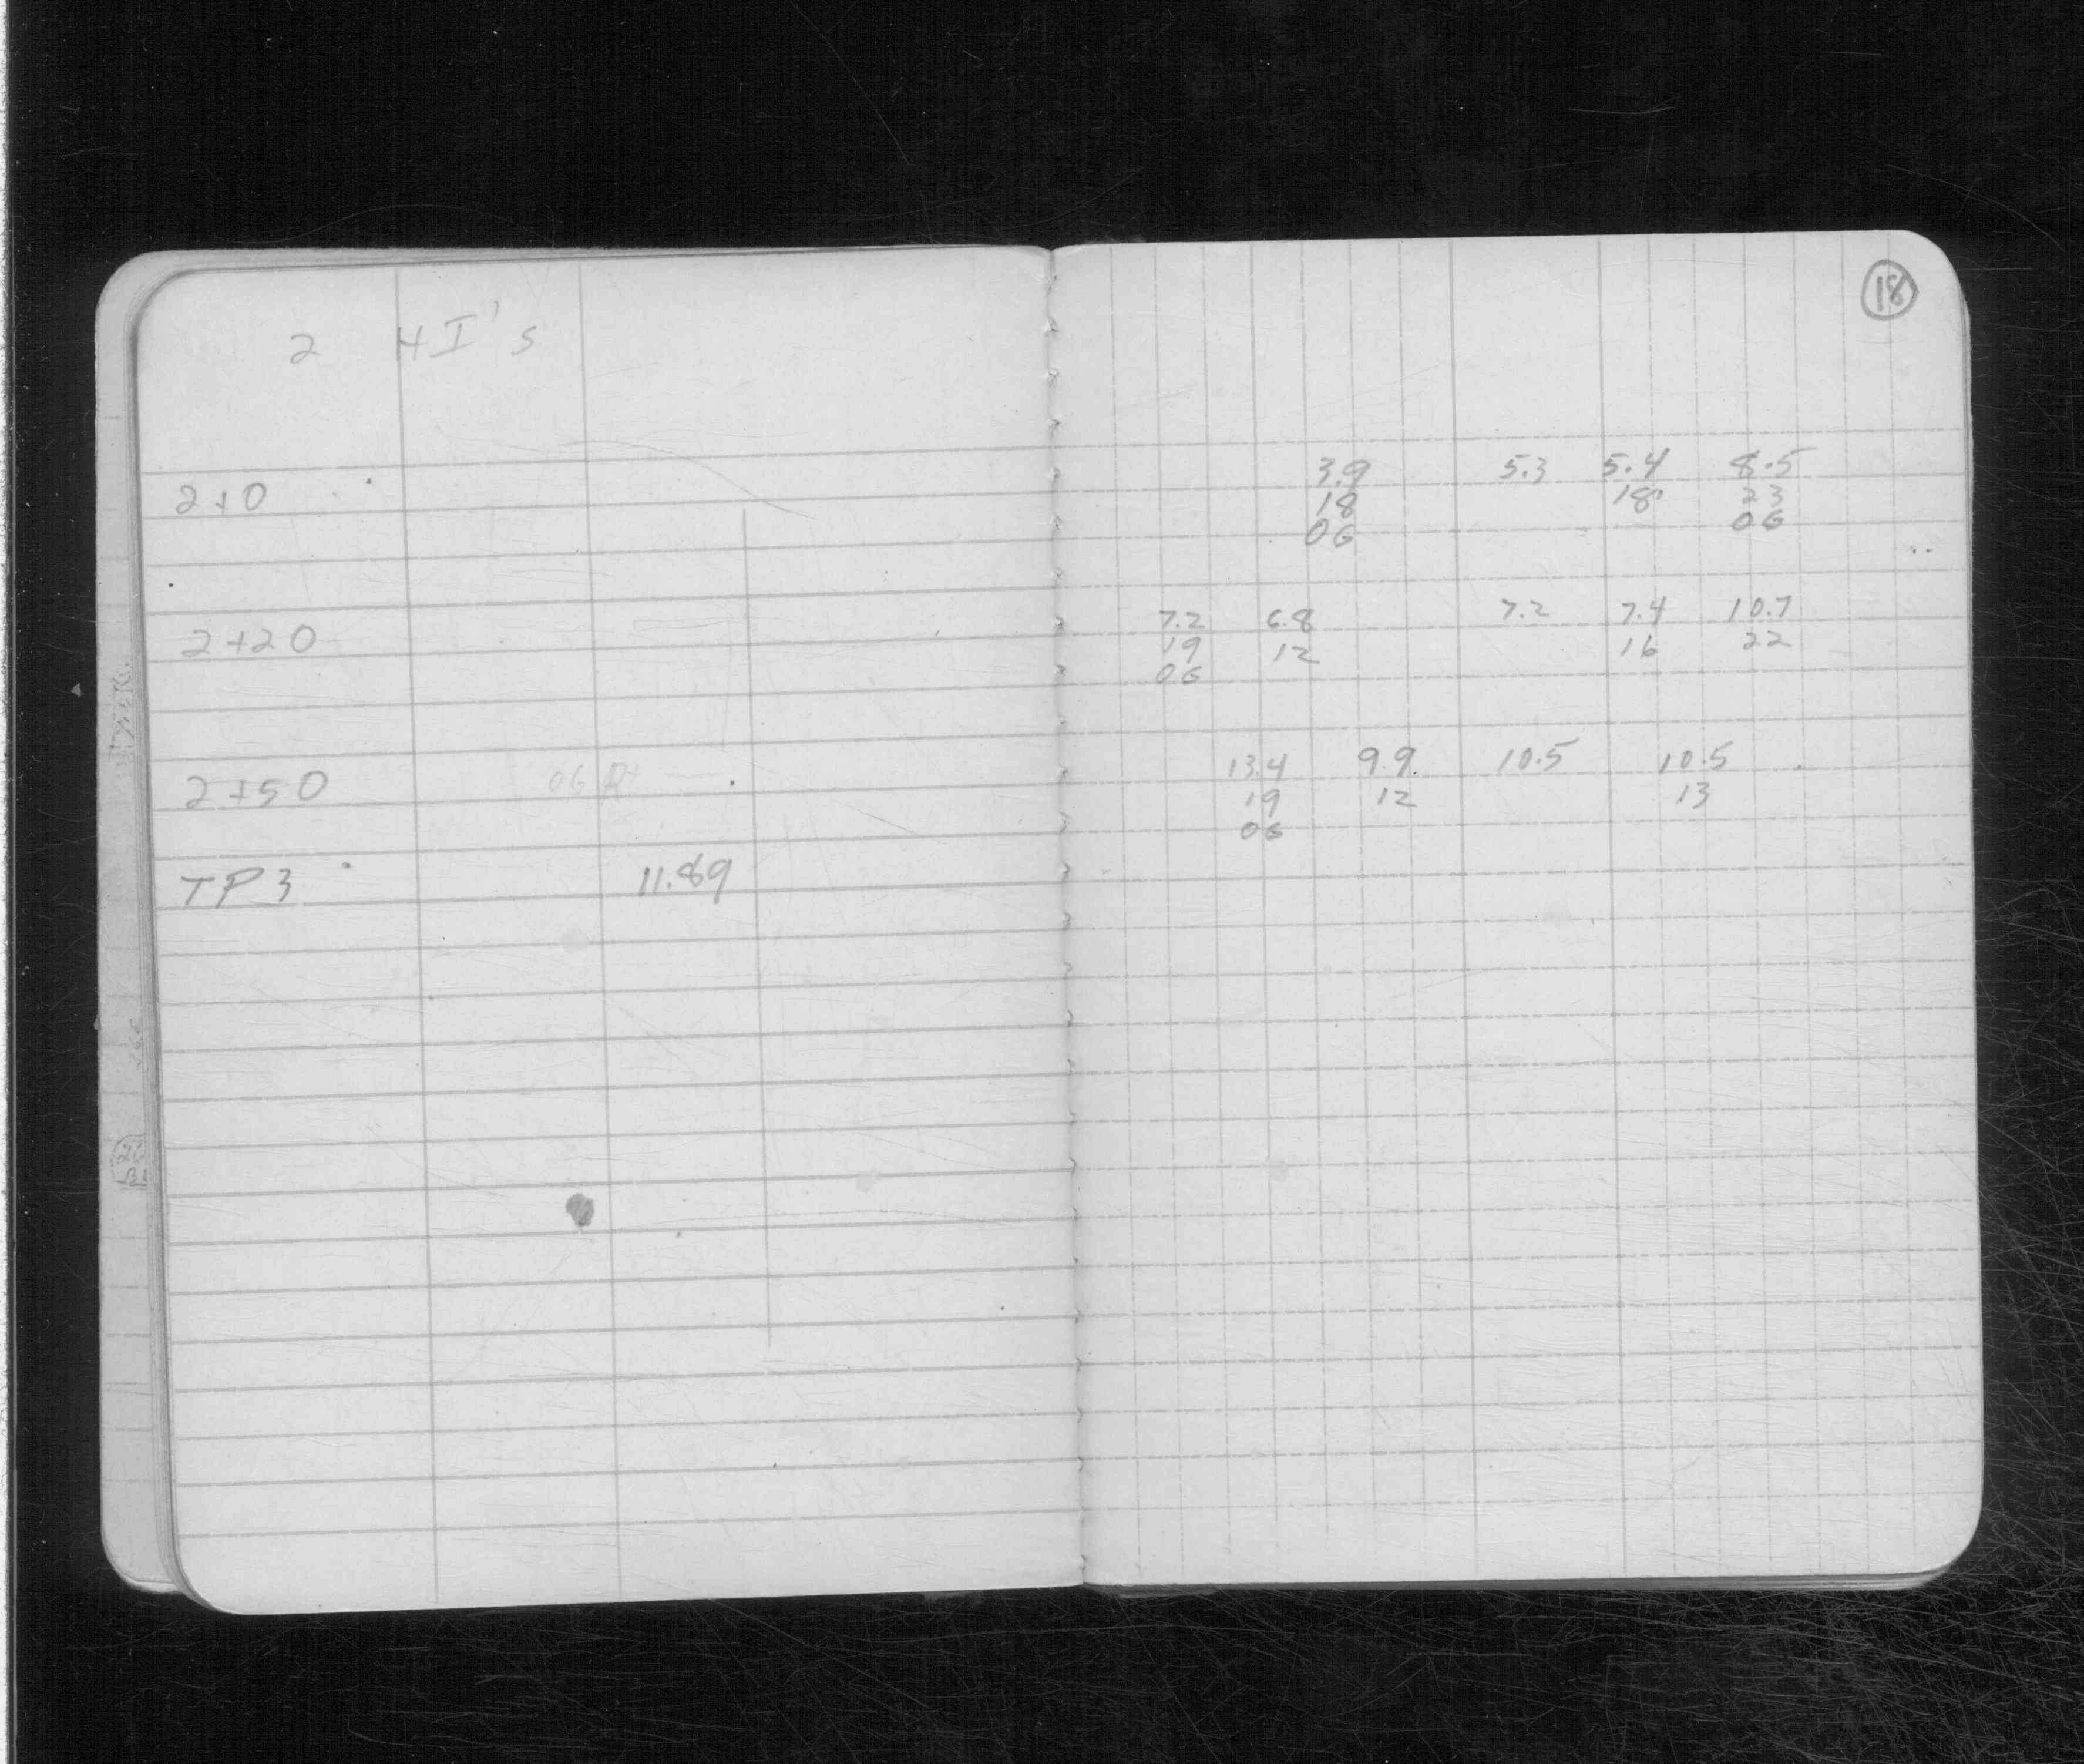 18
2 HI's
2+0 3.9 5.3 5.4 8.5
18 18 23
OG OG
2+20 7.2 6.8 7.2 7.4 10.7
19 12 16 22
OG
2+50 OG Rt 13.4 9.9 10.5 10.5
19 12 13
OG
TP3 11.89